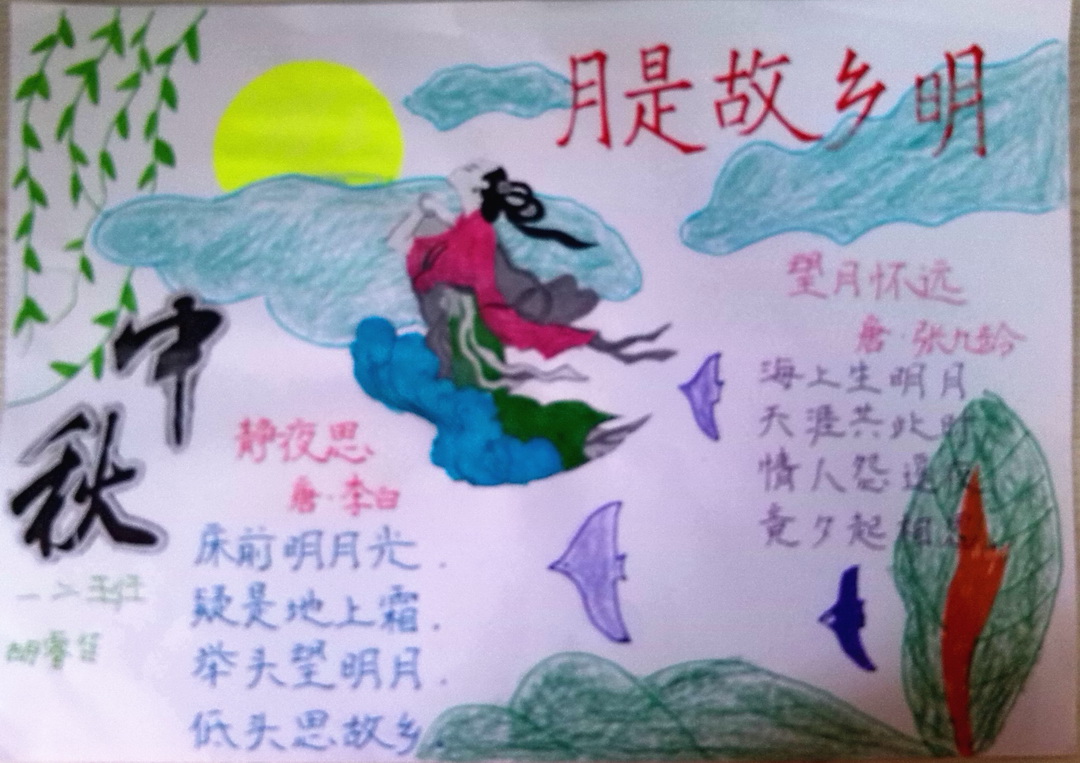 月是故乡明
中秋
一二班
静夜思
唐·李白
床前明月光.
疑是地上霜.
举头望明月.
低头思故乡.
望月怀远
唐·张九龄
海上生明月
天涯共此时
情人怨遥夜
竟夕起相思